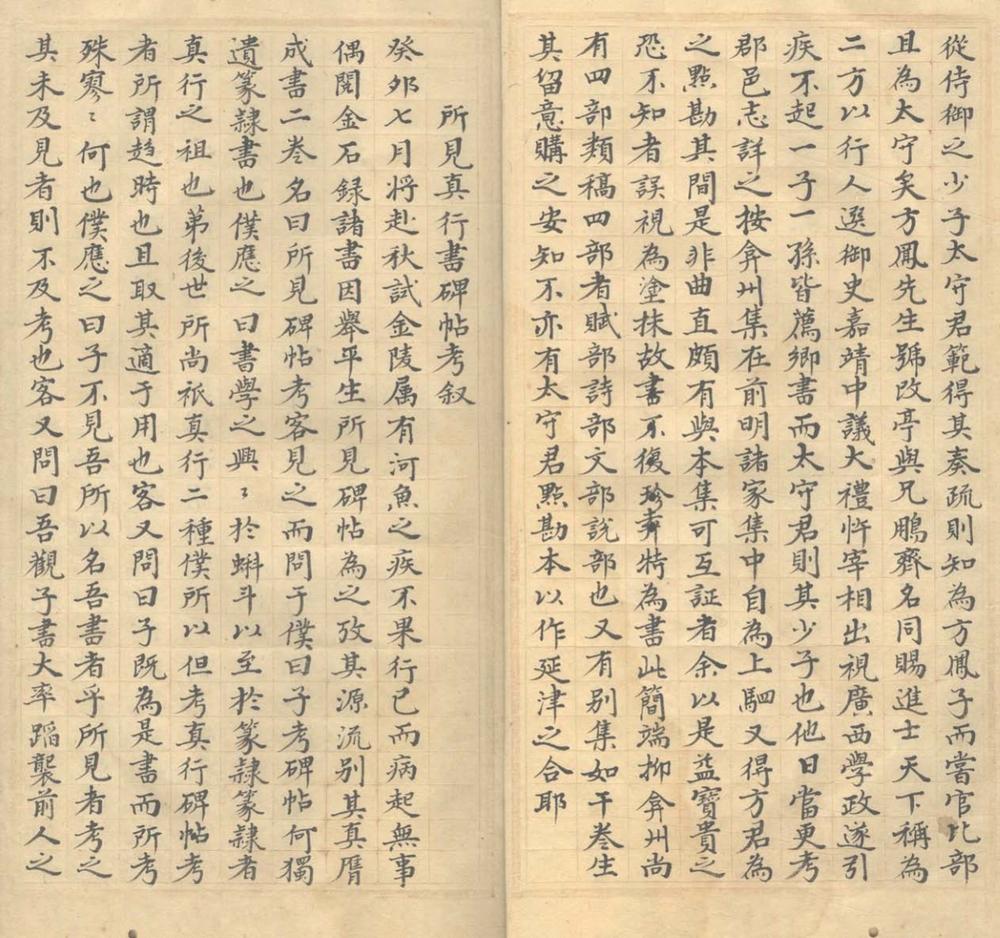 從侍御之少子太守君範得其奏疏則知為方鳳子而嘗官比部
且為太守矣方鳳先生號改亭與兄鵬齊名同賜進士天下稱為
二方以行人選御史嘉靖中議大禮忤宰相出視廣西學政遂引
疾不起一子一孫皆薦鄉書而太守君則其少子也他日當更考
郡邑志詳之按弇州集在前明諸家集中自為上駟又得方君為
之點勘其間是非曲直頗有與本集可互証者余以是益寶貴之
恐不知者誤視為塗抹故書不復珍弆特為書此簡端抑弇州尚
有四部類稿四部者賦部詩部文部說部也又有别集如干卷生
其留意購之安知不亦有太守君點勘本以作延津之合耶
所見真行書碑帖考叙
癸夘七月将赴秋試金陵属有河魚之疾不果行已而病起無事
偶閱金石録諸書因舉平生所見碑帖為之攷其源流别其真贋
成書二巻名曰所見碑帖考客見之而問于僕曰子考碑帖何獨
遺篆隸書也僕應之曰書學之興〻於蝌斗以至於篆隸篆隸者
真行之祖也苐後世所尚祇真行二種僕所以但考真行碑帖考
者所謂趋時也且取其適于用也客又問曰子既為是書而所考
殊寥〻何也僕應之曰子不見吾所以名吾書者乎所見者考之
其未及見者則不及考也客又問曰吾觀子書大率蹈襲前人之